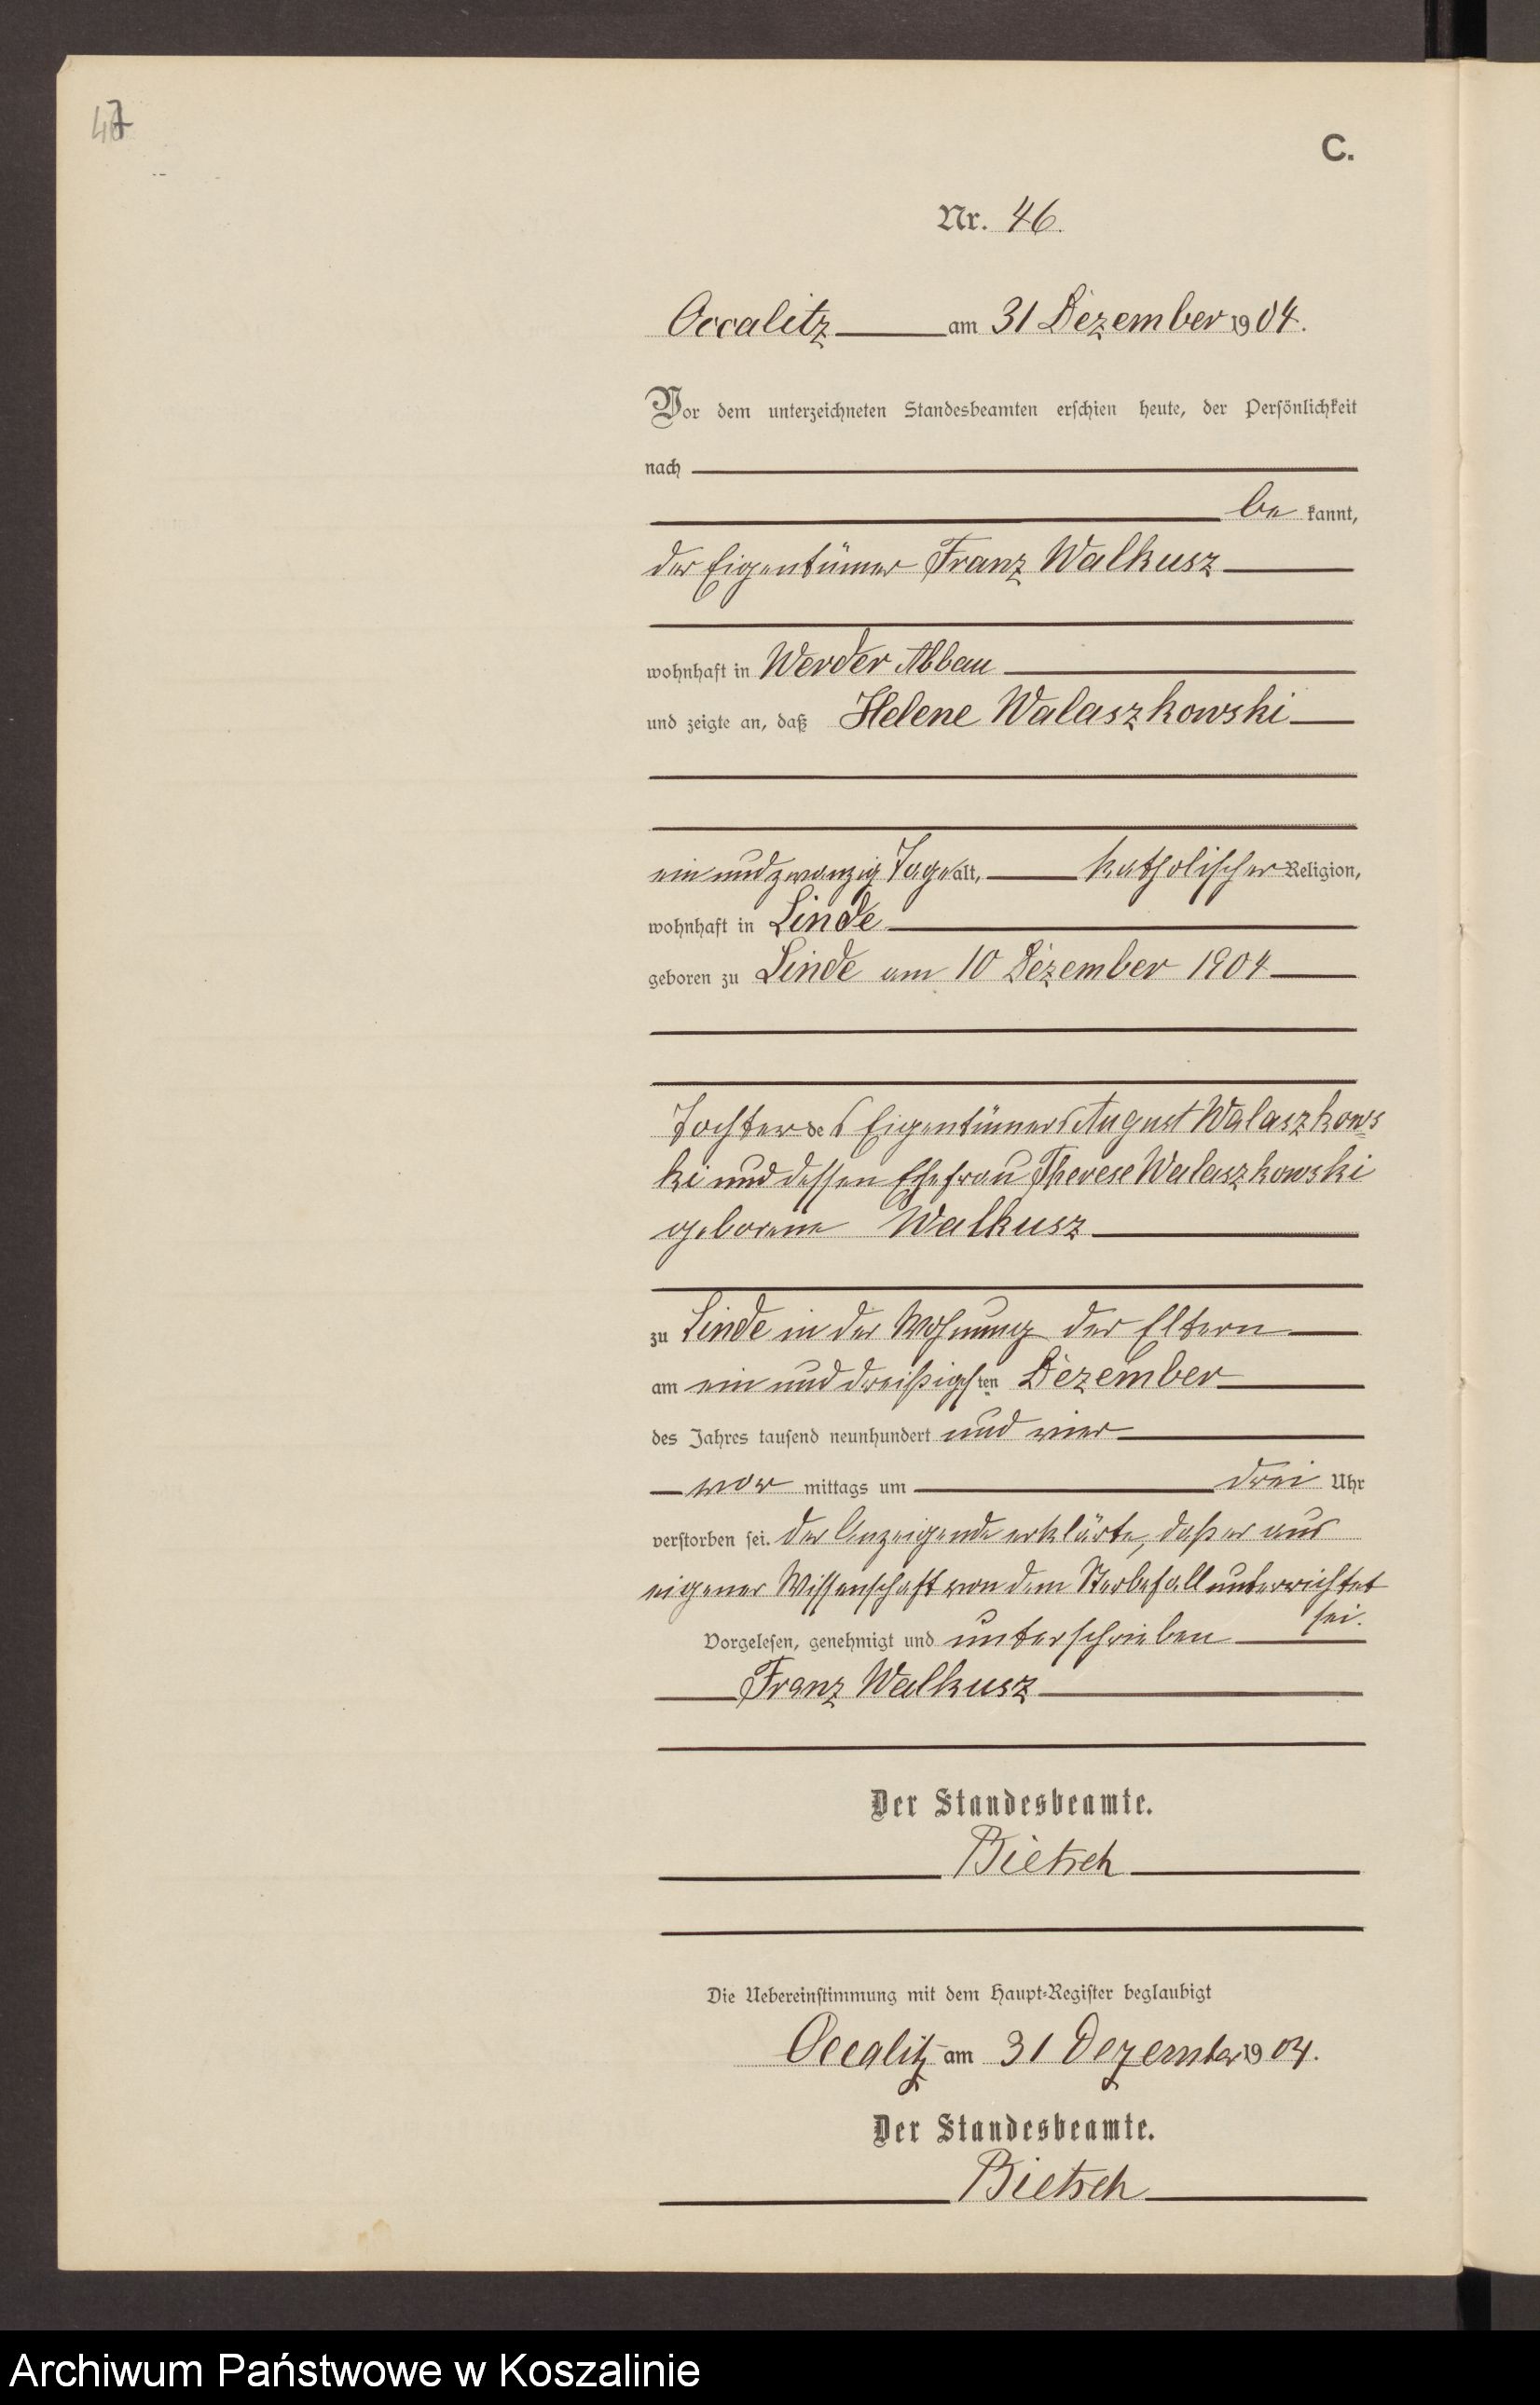 47
C.
Nr. 46.
Occalitz am 31 Dezember 1904.
Vor dem unterzeichneten Standesbeamten erschien heute, der Persönlichkeit
nach
be kannt,
der Eigentümer Franz Walkusz
wohnhaft in Werder Abbau
und zeigte an, daß Helene Walaszkowski
ein und zwanzig Tage alt, katholischer Religion,
wohnhaft in Linde
geboren zu Linde am 10 Dezember 1904
Tochter des Eigentümers August Walaszkows
ki und dessen Ehefrau Therese Walaszkowski
geborene Walkusz
zu Linde in der Wohnung der Eltern
am ein und dreißigsten Dezember
des Jahres tausend neunhundert und vier
vor mittags um drei Uhr
verstorben sei. Der Anzeigende erklärte, daß er aus
eigener Wissenschaft von dem Sterbefall unterrichtet
sei.
Vorgelesen, genehmigt und unterschrieben
Franz Walkusz
Der Standesbeamte.
Bietsch
Die Uebereinstimmung mit dem Haupt-Register beglaubigt
Occalitz am 31 Dezember 1904.
Der Standesbeamte.
Bietsch
Archiwum Państwowe w Koszalinie